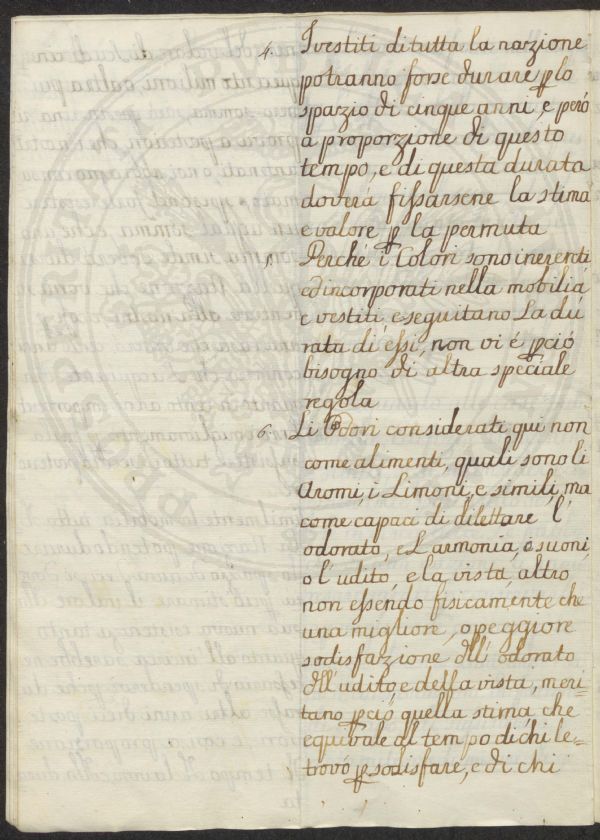 4. I vestiti di tutta la nazzione
potranno forse durare p lo
spazio di cinque anni, e però
a proporzione di questo
tempo, e di questa durata
doverà fissarsene la stima
e valore p la permuta
5. Perche i Colori sono inerenti
ed incorporati nella mobilia
e vestiti e seguitano La du
rata di essi, non vi é pciò
bisogno di altra speciale
regola
6. Li Odori considerati qui non
come alimenti, quali sono li
Aromi, i Limoni, e simili, ma
come capaci di dilettare l'
odorato, e L'armonia, e suoni,
o l'udito, e la vista, altro
non essendo fisicamente che
una migliore, o peggiore
sodisfazzione dell' odorato
dell'udito, e della vista, meri-
tano pciò quella stima che
equivale al tempo di chi le
trovò p sodisfare, e di chi